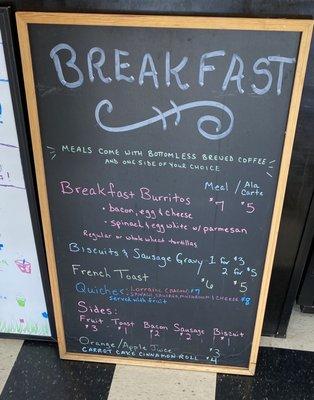 BREAKFAST
MEALS COME WITH BOTTOMLESS BREWED COFFEE
AND ONE SIDE OF YOUR CHOICE
Meal / Ala Carte
Breakfast Burritos $7 $5
• bacon, egg & cheese
• spinach & egg white w/ parmesan
Regular or whole wheat tortillas
Biscuits & Sausage Gravy 1 for $3
2 for $5
French Toast $6 $5
Quiche: Lorraine (bacon) $7
SPINACH, SAUSAGE, MUSHROOM & CHEESE $8
Served with fruit
Sides:
Fruit Toast Bacon Sausage Biscuit
$3 $1 $2 $2 $1
Orange/Apple Juice $3
CARROT CAKE CINNAMON ROLL $4